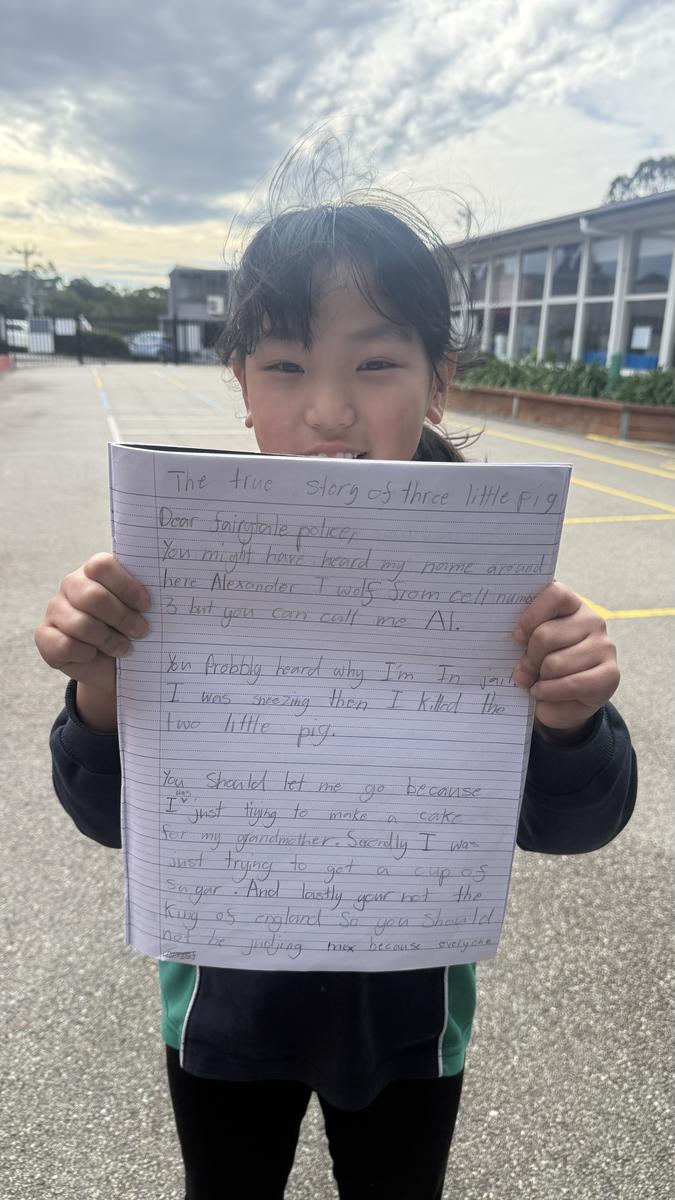 The true story of three little pig
Dear fairytale police,
You might have heard my name around
here Alexander T wolf from cell number
3 but you can call me Al.
You Probbly heard why I'm In jail.
I was sneezing then I killed the
two little pig.
You Should let me go because
I was just trying to make a cake
for my grandmother. Secondly I was
just trying to get a cup of
sugar. And lastly your not the
King of england So you Should
not be judjing me because everyone